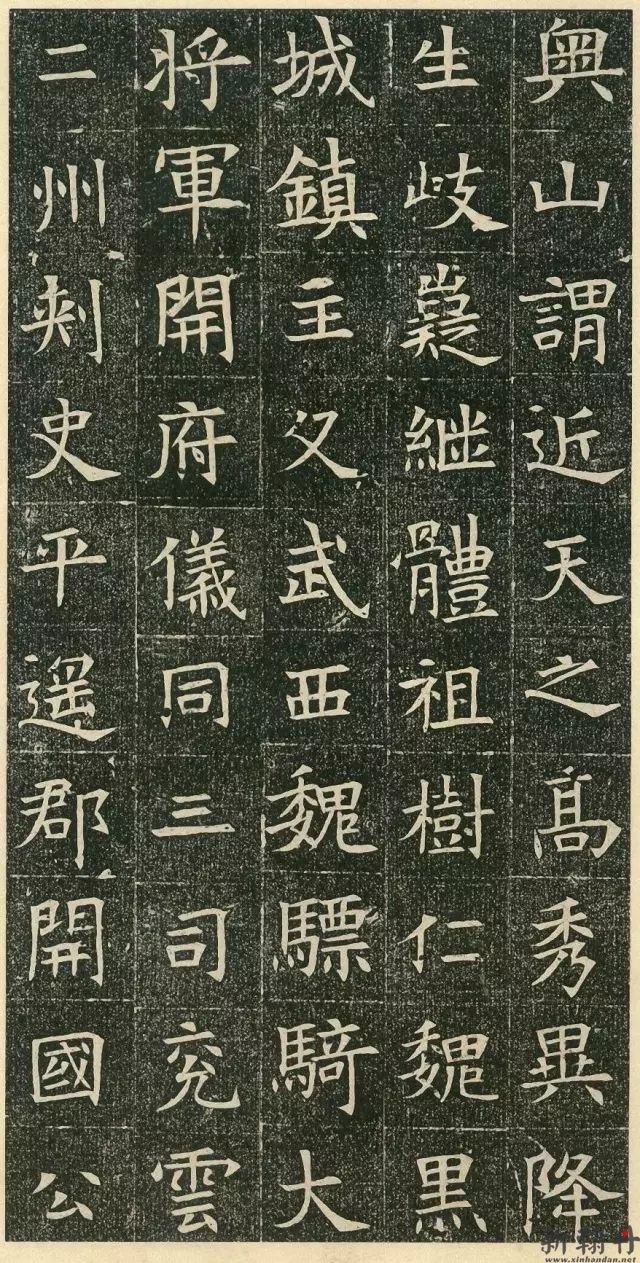 奥山謂近天之高秀異降
生岐嶷継體祖樹仁魏黒
城鎮主父武西魏驃騎大
将軍開府儀同三司兖雲
二州刺史平遥郡開國公
新翰丹
www.xinhandan.net